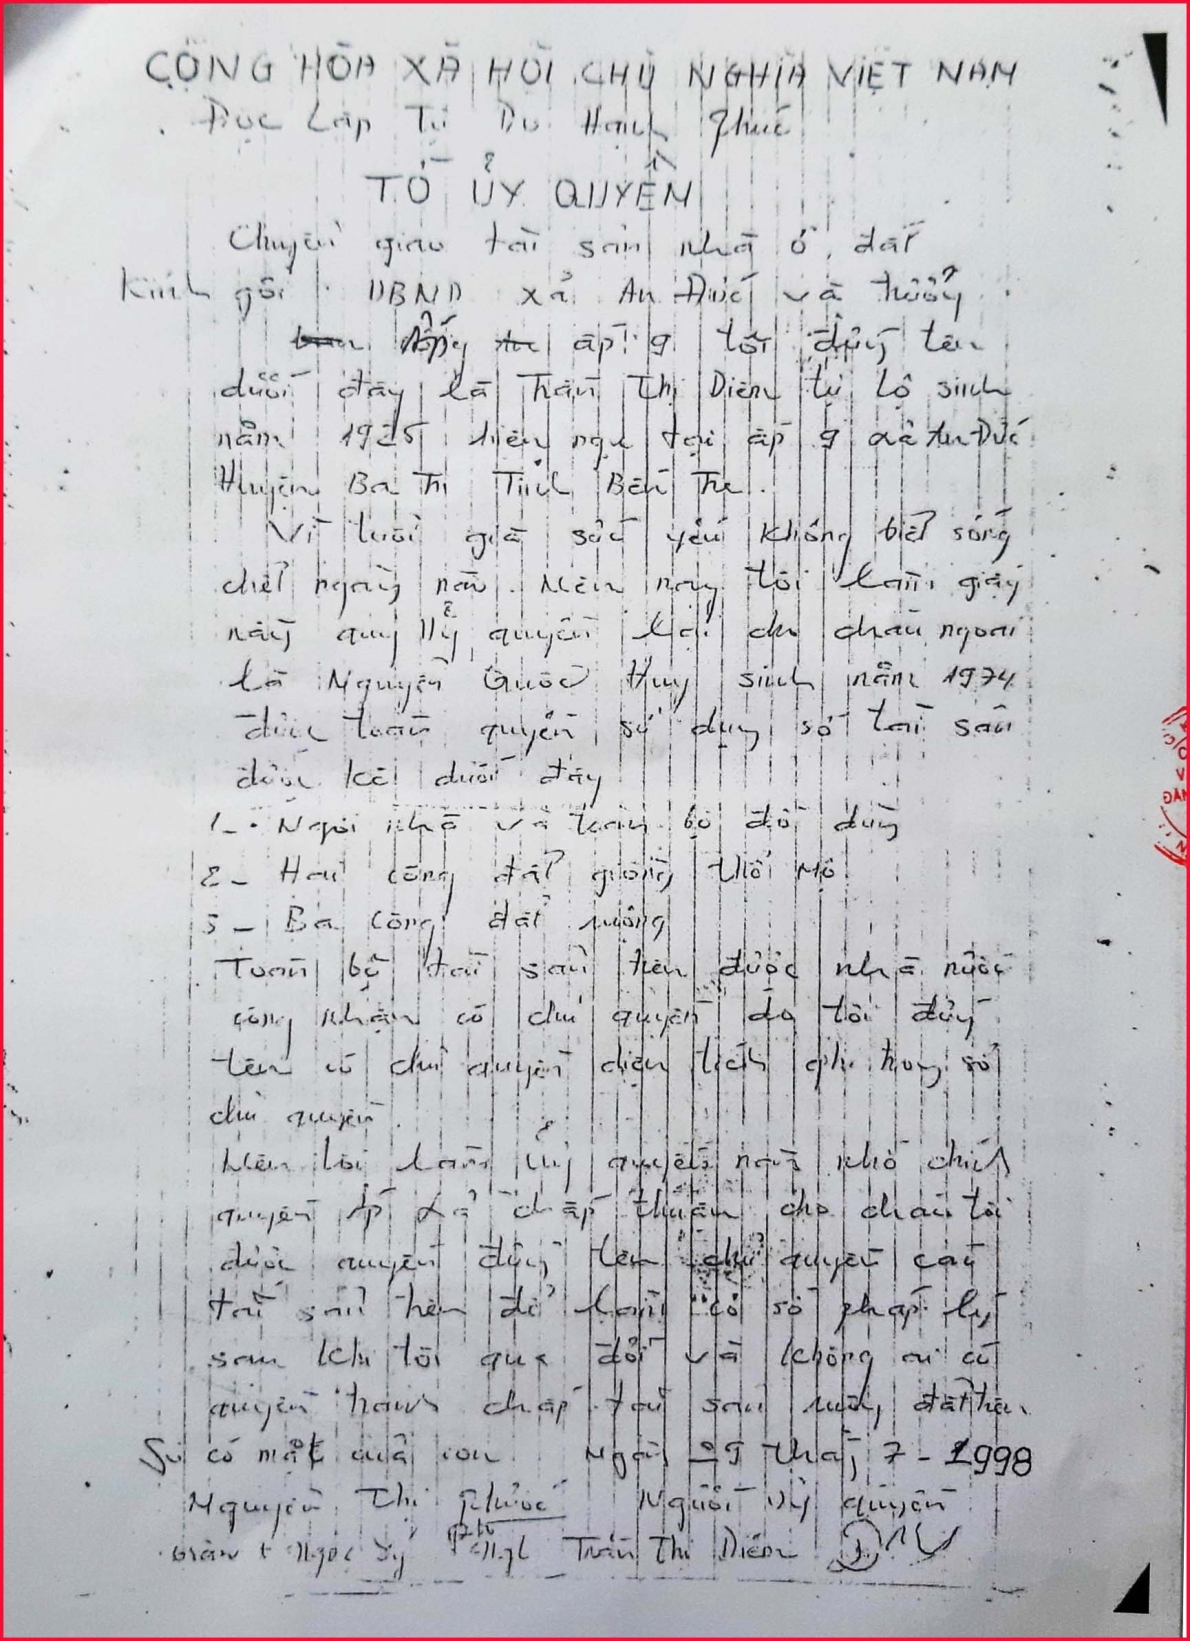 CỘNG HÒA XÃ HỘI CHỦ NGHĨA VIỆT NAM
Độc Lập Tự Do Hạnh Phúc
TỜ ỦY QUYỀN
Chuyển giao tài sản nhà ở, đất
Kính gởi UBND xã An Đức và trưởng
ấp 9 tôi đứng tên
dưới đây là Trần Thị Diêm tự Lộ sinh
năm 1925 hiện ngụ tại ấp 9 xã An Đức
Huyện Ba Tri Tỉnh Bến Tre.
Vì tuổi già sức yếu không biết sống
chết ngày nào. Nên nay tôi làm giấy
này quy Uỷ quyền lại cho cháu ngoại
là Nguyễn Quốc Huy sinh năm 1974
được toàn quyền sử dụng số tài sản
được kê dưới đây
1 - Ngôi nhà và toàn bộ đồ dùng
2 - Hai công đất giồng thổ mộ
3 - Ba công đất ruộng
Toàn bộ tài sản trên được nhà nước
công nhận có chủ quyền do tôi đứng
tên có chủ quyền diện tích ghi trong sổ
chủ quyền.
Nên tôi làm Uỷ quyền này nhờ chính
quyền ấp xã chấp thuận cho cháu tôi
được quyền đứng tên chủ quyền các
tài sản trên để làm cơ sở pháp lý
sau khi tôi qua đời và không ai có
quyền tranh chấp tài sản ruộng đất trên
Sự có mặt của con Ngày 29 tháng 7 - 1998
Nguyễn Thị Phước Người Uỷ quyền
Trần Thị Diêm